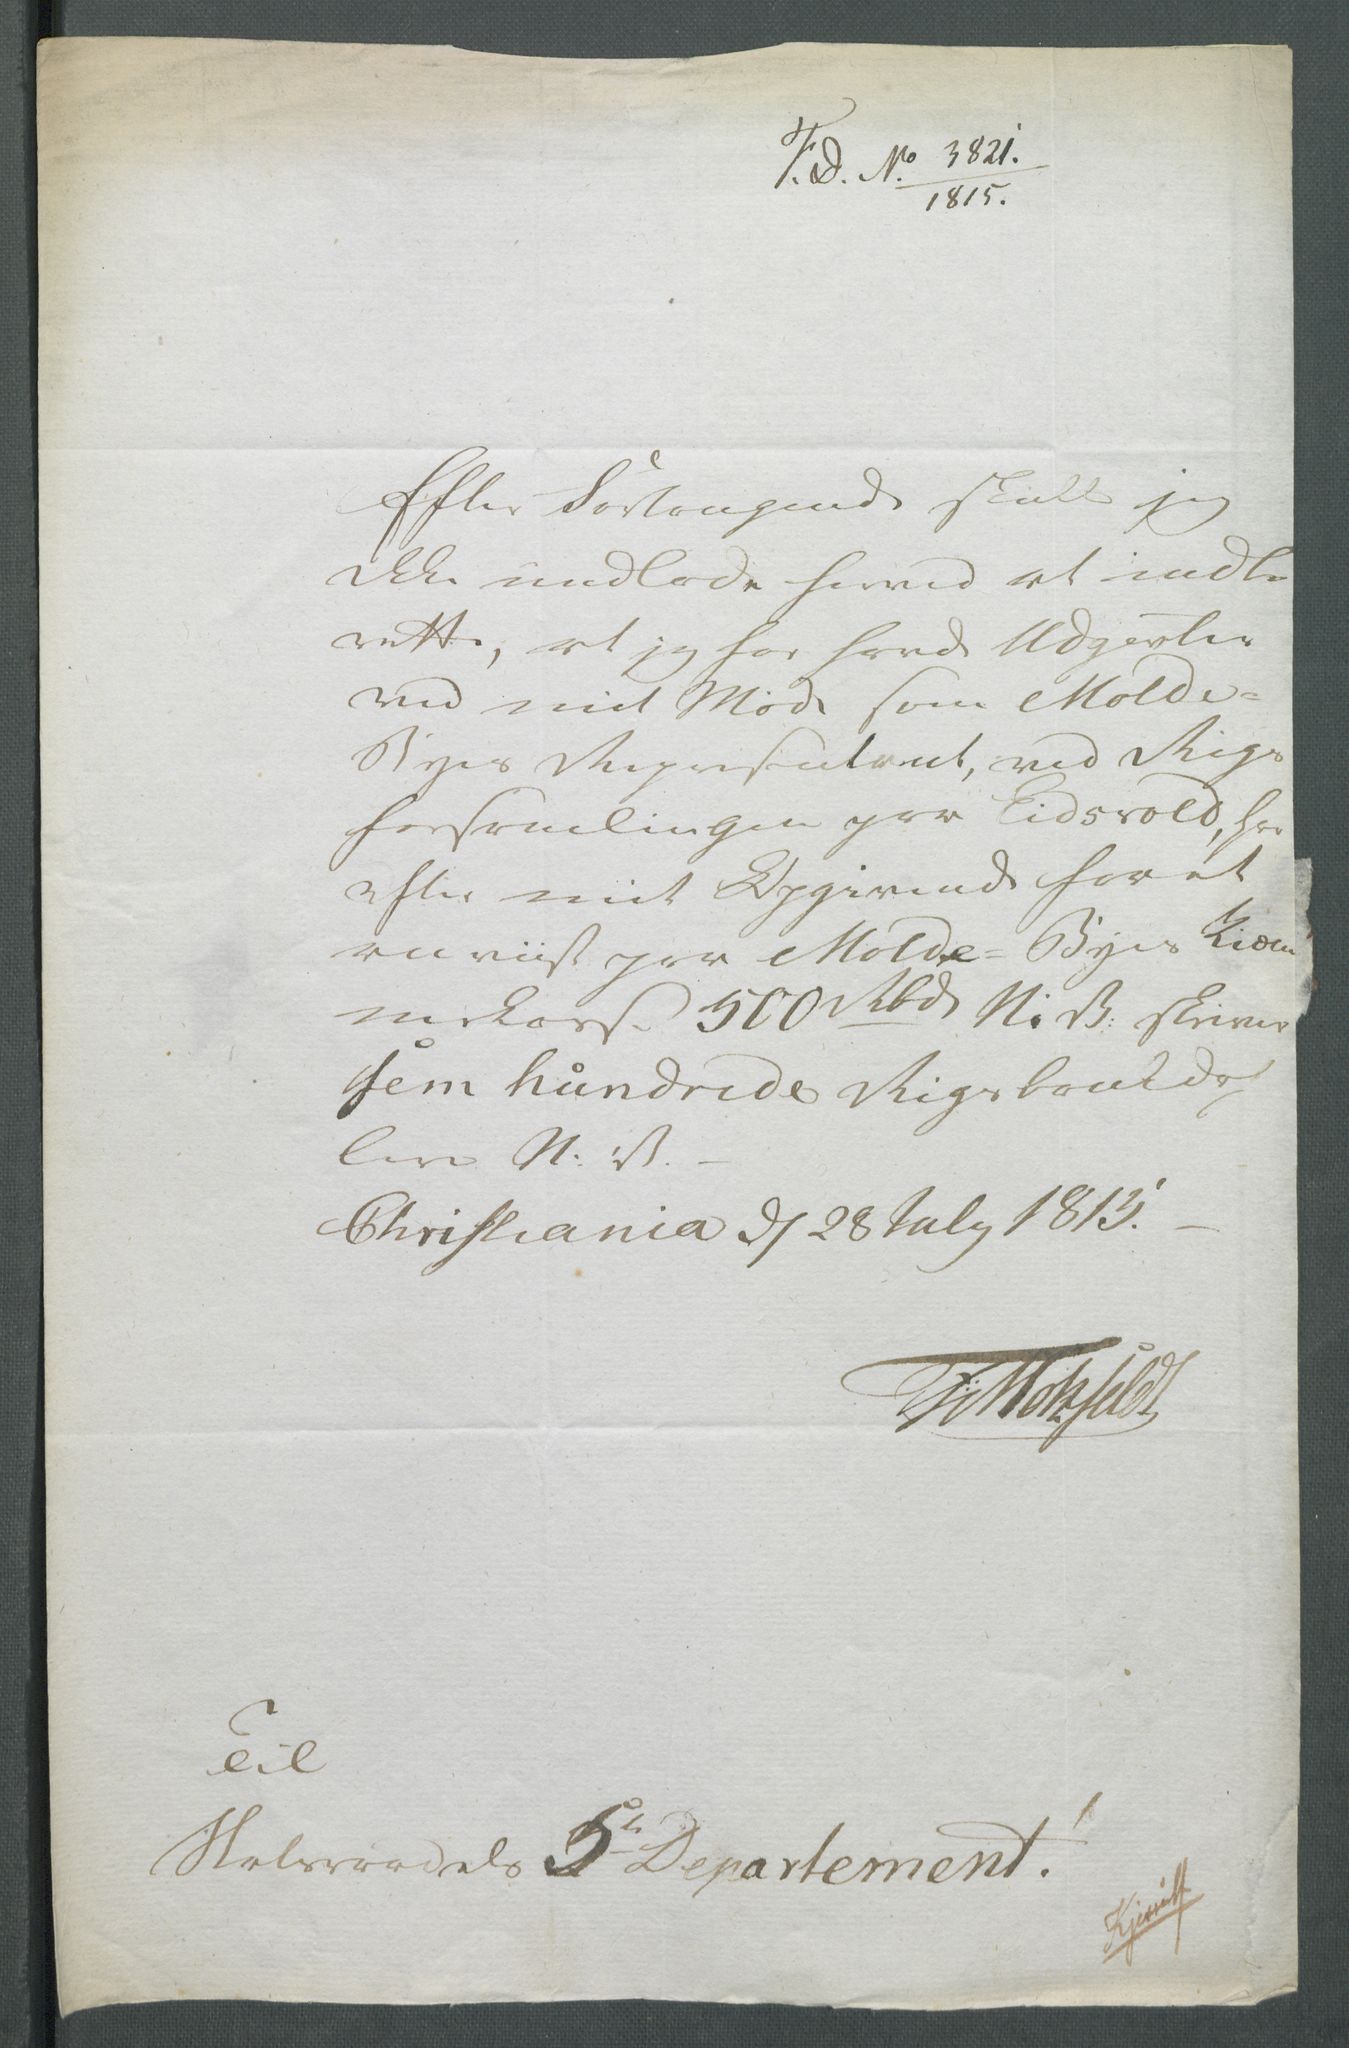 F. D. No 3821.
1815.
Efter Forlangende skulle jeg
ikke undlade herved at indbe
rette, at jeg for havde Udgifter
ved mit Møde som Molde=
Byes Repræsentant, ved Rigs
forsamlingen paa Eidsvold, har
efter mit Opgivende faaet
anviist paa Molde= Byes Kiæm
nerkasse 500 Rbd N: B: skriver
fem hundrede Rigsbankda
lere N. B. –
Christiania d 28 July 1815. –
Motzfeldt
Til
Statsraadets 5te Departement!